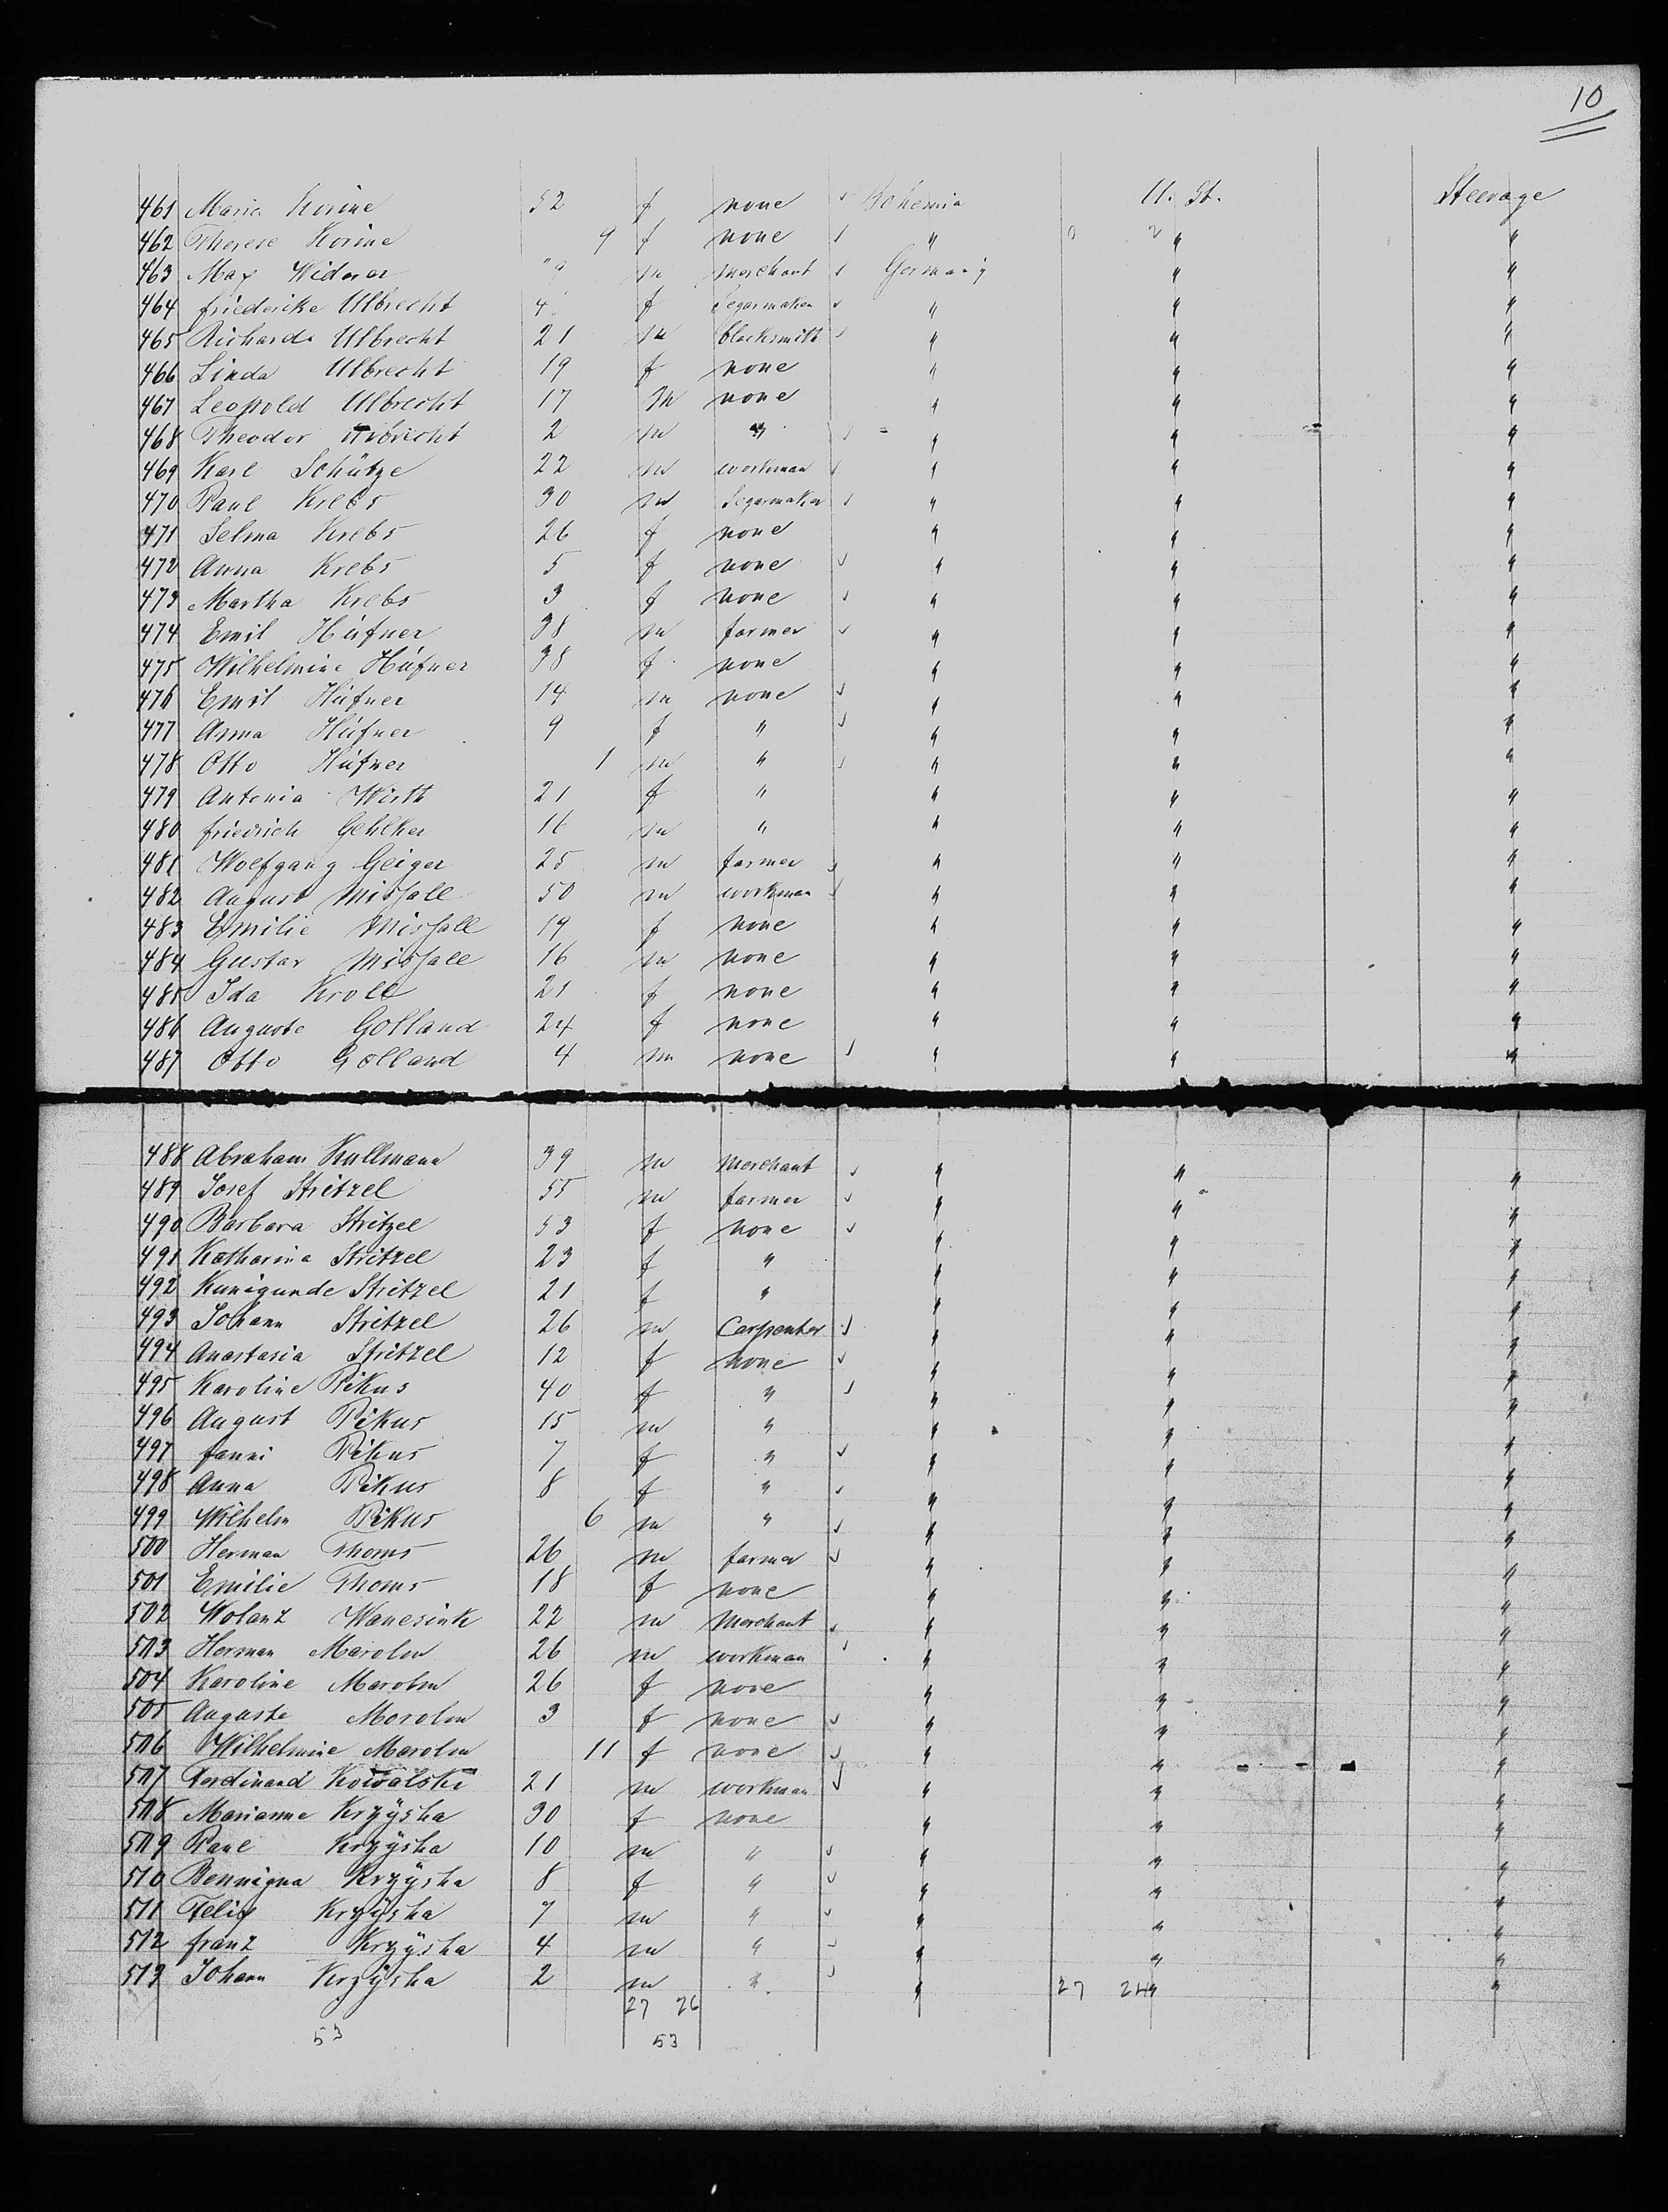 10
461 Maria Korine 52 f none ✓ Bohemia U. St. Steerage
462 Therese Korine 9 f none ✓ " 0 2 " "
463 Max Widerer m merchant ✓ Germany " "
464 friederike Ulbrecht f Segarmaker ✓ " " "
465 Richard Ulbrecht 21 m blacksmith ✓ " " "
466 Linda Ulbrecht 19 f none " " "
467 Leopold Ulbrecht 17 m none " " "
468 Theodor Ulbrecht 2 m " ✓ " " "
469 Karl Schütze 22 m workman ✓ " " "
470 Paul Krebs 30 m Segarmaker ✓ " " "
471 Selma Krebs 26 f none " " "
472 Anna Krebs 5 f none ✓ " " "
473 Martha Krebs 3 f none ✓ " " "
474 Emil Hüfner 38 m farmer ✓ " " "
475 Wilhelmine Hüfner 38 f none " " "
476 Emil Hüfner 14 m none ✓ " " "
477 Anna Hüfner 9 f " ✓ " " "
478 Otto Hüfner 1 m " ✓ " " "
479 Antonia Wirth 21 f " " " "
480 friedrich Gehlker 16 m " " " "
481 Wolfgang Geiger 25 m farmer ✓ " " "
482 August Misfall 50 m workman ✓ " " "
483 Emilie Misfall 19 f none " " "
484 Gustav Misfall 16 m none " " "
485 Ida Kroll 21 f none " " "
486 Auguste Golland 24 f none " " "
487 Otto Golland 4 m none ✓ " " "
488 Abraham Kullmann 39 m Merchant ✓ " " "
489 Josef Stritzel 55 m farmer ✓ " " "
490 Barbara Stritzel 53 f none ✓ " " "
491 Katharina Stritzel 23 f " " " "
492 Kunigunde Stritzel 21 f " " " "
493 Johann Stritzel 26 m Carpenter ✓ " " "
494 Anastasia Stritzel 12 f none ✓ " " "
495 Karoline Pikus 40 f " ✓ " " "
496 August Pikus 15 m " " " "
497 fanni Pikus 7 f " ✓ " " "
498 Anna Pikus 8 f " ✓ " " "
499 Wilhelm Pikus 6 m " ✓ " " "
500 Herman Thoms 26 m farmer ✓ " " "
501 Emilie Thoms 18 f none " " "
502 Wolanz Wanesink 22 m Merchant ✓ " " "
503 Herman Marolm 26 m workman ✓ " " "
504 Karoline Marolm 26 f none " " "
505 Auguste Marolm 3 f none ✓ " " "
506 Wilhelmine Marolm 11 f none ✓ " " "
507 Ferdinand Kowalski 21 m workman ✓ " " "
508 Marianne Krzÿsha 30 f none " " "
509 Paul Krzÿsha 10 m " ✓ " " "
510 Bennigna Krzÿsha 8 f " ✓ " " "
511 Felix Krzÿsha 7 m " ✓ " " "
512 franz Krzÿsha 4 m " ✓ " " "
513 Johann Krzÿsha 2 m " ✓ " 27 24 " "
27 26
53 53